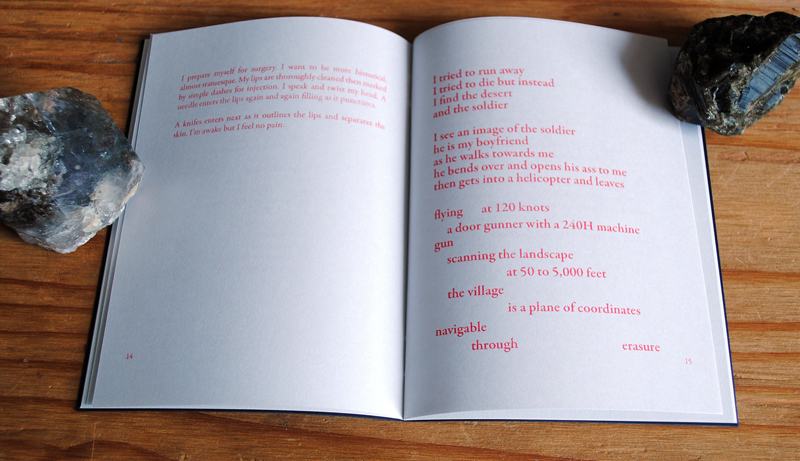 I prepare myself for surgery. I want to be more historical,
almost statuesque. My lips are thoroughly cleaned then marked
by simple dashes for injection. I speak and twist my head. A
needle enters the lips again and again filling as it punctures.
A knife enters next as it outlines the lips and separates the
skin. I'm awake but I feel no pain.
14
I tried to run away
I tried to die but instead
I find the desert
and the soldier
I see an image of the soldier
he is my boyfriend
as he walks towards me
he bends over and opens his ass to me
then gets into a helicopter and leaves
flying at 120 knots
a door gunner with a 240H machine
gun
scanning the landscape
at 50 to 5,000 feet
the village
is a plane of coordinates
navigable
through erasure
15